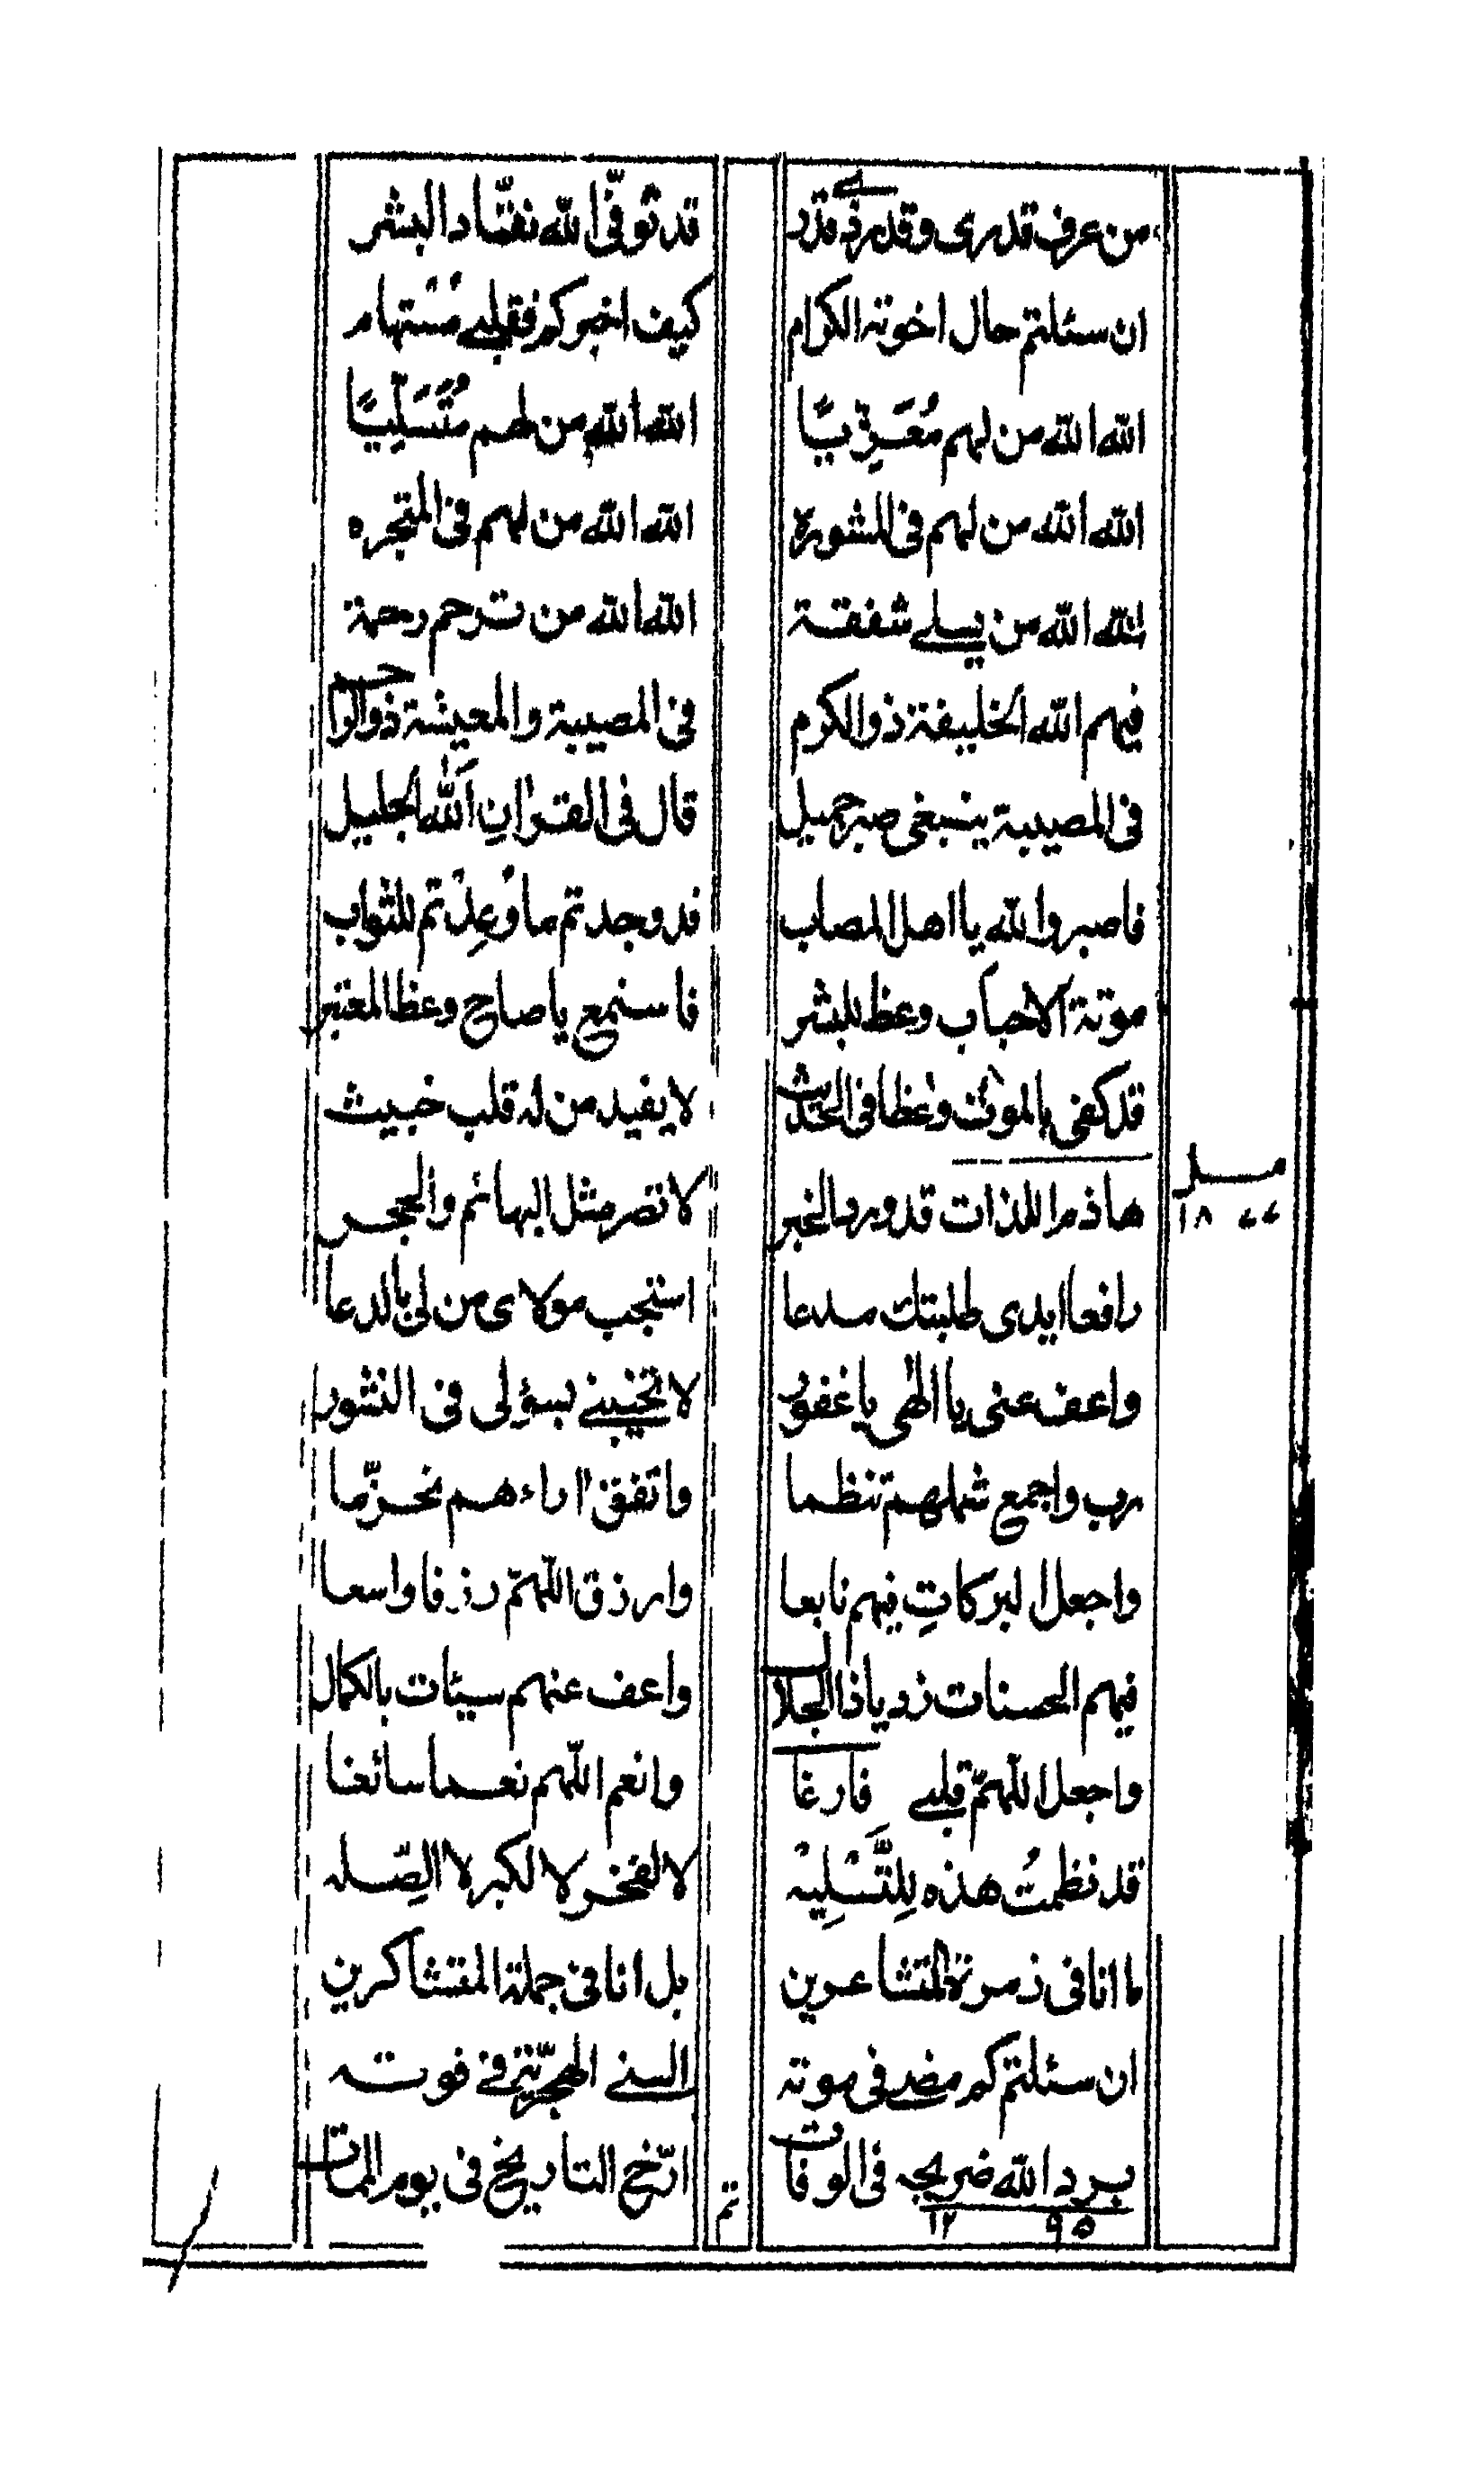 من عرف قدری وقدره قدر قدتوفّی الله نقّاد البشر
ان سئلتم حال اخوته الکرام کیف اخبرکم فقلبے مُسْتهام
الله الله من لهم مُعَزِّیًا الله الله من لهم مُتَسَلِّیًا
الله الله من لهم فی المشوره الله الله من لهم فی المتجره
الله الله من یسلے شفقة الله الله من ترحم رحمة
فیهم الله الخلیفة ذو الکرم فی المصیبة والمعیشة ذو الوا
فی المصیبة ینبغی صبر جمیل قال فی القراٰن اَللّٰه الجلیل
فاصبروا لله یا اهل المصاب قد وجدتم ما وُعِدْتم للثواب
موتة الاحباب وعظ للبشر فاستمع یا صاح وعظا لمعتبر
قد کفی بالموت وعظا فی الحدیث لا یفید من له قلب خبیث
هاذم اللذات قد ورد الخبر لا تضر مثل البهائم والحجر
۱۸ ۷۷
رافعا ایدی طلبتك مدعا استجب مولای من لی بالدعا
واعف عنی یا الٰهی یا غفور لا تخیبنے بسؤلی فی النشور
رب واجمع شملهم تنظما واتفق اٰراءهم تحزّما
واجعل البرکاتِ فیهم تابعا وارزق اللهمّ رزقا واسعا
فیهم الحسنات زد یا ذا الجلال واعف عنهم سیئات بالکمال
واجعل اللهمّ قلبے فارغا وانعم اللهم نعما سائغا
قد نظمتُ هذه لِلتَّسْلِیَه لا لفخر لا لکبر لا الصِّله
ما انا فی زمرة المتشاعرین بل انا فی جملة المتشاکرین
ان سئلتم کم مضے فی موته السنے الهجریّة فے فوته
برد الله ضریحه فی الوفات ارّخ التاریخ فی یوم الممات
۱۲ ۹۵
تم